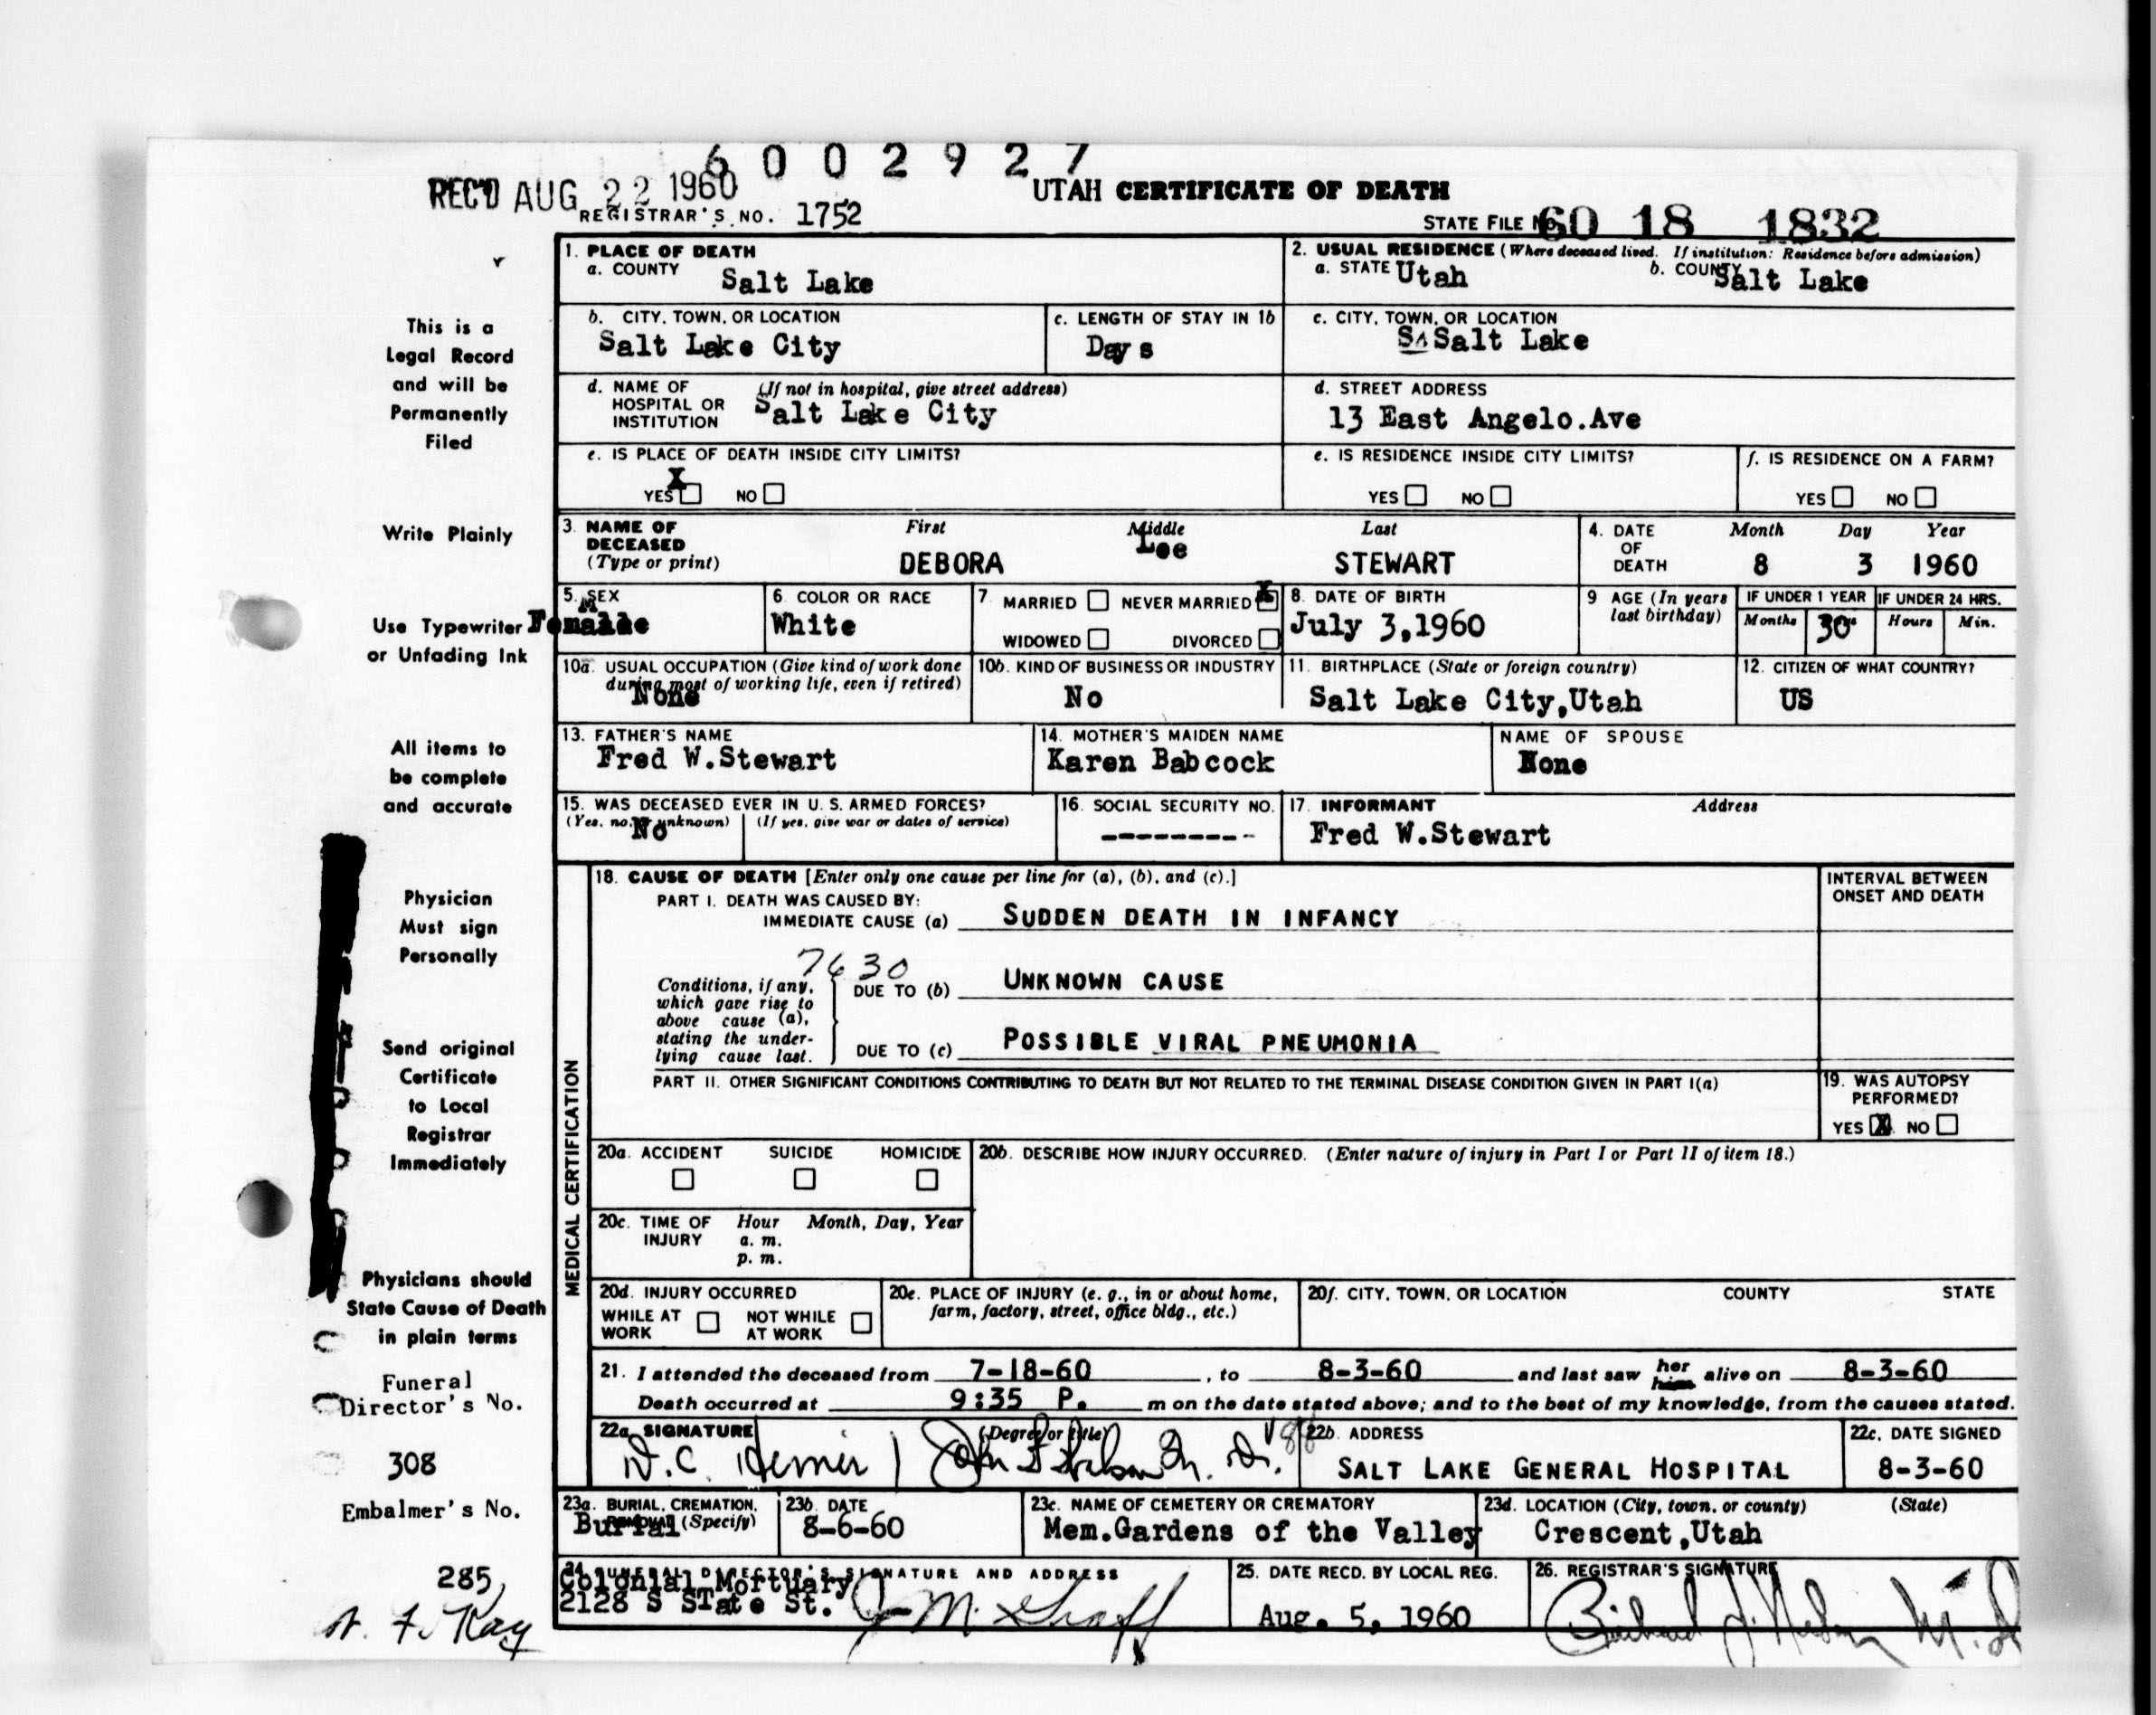 6002927
REC'D AUG 22 1960
UTAH CERTIFICATE OF DEATH
REGISTRAR'S NO. 1752
STATE FILE No. 60 18 1832
This is a
Legal Record
and will be
Permanently
Filed
Write Plainly
Use Typewriter
or Unfading Ink
All items to
be complete
and accurate
Physician
Must sign
Personally
Send original
Certificate
to Local
Registrar
Immediately
Physicians should
State Cause of Death
in plain terms
Funeral
Director's No.
308
Embalmer's No.
285
1. PLACE OF DEATH
a. COUNTY Salt Lake
2. USUAL RESIDENCE (Where deceased lived. If institution: Residence before admission)
a. STATE Utah b. COUNTY Salt Lake
b. CITY, TOWN, OR LOCATION
Salt Lake City
c. LENGTH OF STAY IN 1b
Days
c. CITY, TOWN, OR LOCATION
So Salt Lake
d. NAME OF HOSPITAL OR INSTITUTION (If not in hospital, give street address)
Salt Lake City
d. STREET ADDRESS
13 East Angelo.Ave
e. IS PLACE OF DEATH INSIDE CITY LIMITS?
YES X NO
e. IS RESIDENCE INSIDE CITY LIMITS?
YES NO
f. IS RESIDENCE ON A FARM?
YES NO
3. NAME OF DECEASED (Type or print)
First Middle Last
DEBORA Lee STEWART
4. DATE OF DEATH Month Day Year
8 3 1960
5. SEX
Female
6. COLOR OR RACE
White
7. MARRIED NEVER MARRIED X
WIDOWED DIVORCED
8. DATE OF BIRTH
July 3,1960
9 AGE (In years last birthday)
IF UNDER 1 YEAR
Months 30
IF UNDER 24 HRS.
Hours Min.
10a. USUAL OCCUPATION (Give kind of work done during most of working life, even if retired)
None
10b. KIND OF BUSINESS OR INDUSTRY
No
11. BIRTHPLACE (State or foreign country)
Salt Lake City,Utah
12. CITIZEN OF WHAT COUNTRY?
US
13. FATHER'S NAME
Fred W.Stewart
14. MOTHER'S MAIDEN NAME
Karen Babcock
NAME OF SPOUSE
None
15. WAS DECEASED EVER IN U. S. ARMED FORCES?
(Yes, no, or unknown) (If yes, give war or dates of service)
No
16. SOCIAL SECURITY NO.
---------
17. INFORMANT Address
Fred W.Stewart
MEDICAL CERTIFICATION
18. CAUSE OF DEATH [Enter only one cause per line for (a), (b), and (c).]
INTERVAL BETWEEN ONSET AND DEATH
PART I. DEATH WAS CAUSED BY:
IMMEDIATE CAUSE (a) SUDDEN DEATH IN INFANCY
7630
Conditions, if any, which gave rise to above cause (a), stating the underlying cause last.
DUE TO (b) UNKNOWN CAUSE
DUE TO (c) POSSIBLE VIRAL PNEUMONIA
PART II. OTHER SIGNIFICANT CONDITIONS CONTRIBUTING TO DEATH BUT NOT RELATED TO THE TERMINAL DISEASE CONDITION GIVEN IN PART I(a)
19. WAS AUTOPSY PERFORMED?
YES X NO
20a. ACCIDENT SUICIDE HOMICIDE
20b. DESCRIBE HOW INJURY OCCURRED. (Enter nature of injury in Part I or Part II of item 18.)
20c. TIME OF INJURY Hour Month, Day, Year
a. m.
p. m.
20d. INJURY OCCURRED
WHILE AT WORK NOT WHILE AT WORK
20e. PLACE OF INJURY (e. g., in or about home, farm, factory, street, office bldg., etc.)
20f. CITY, TOWN, OR LOCATION COUNTY STATE
21. I attended the deceased from 7-18-60, to 8-3-60 and last saw her him alive on 8-3-60
Death occurred at 9:35 P. m on the date stated above; and to the best of my knowledge, from the causes stated.
22a. SIGNATURE (Degree or title)
22b. ADDRESS
SALT LAKE GENERAL HOSPITAL
22c. DATE SIGNED
8-3-60
23a. BURIAL, CREMATION, REMOVAL (Specify)
Burial
23b. DATE
8-6-60
23c. NAME OF CEMETERY OR CREMATORY
Mem.Gardens of the Valley
23d. LOCATION (City, town, or county) (State)
Crescent,Utah
24. FUNERAL DIRECTOR'S SIGNATURE AND ADDRESS
Colonial Mortuary
2128 S STate St.
25. DATE RECD. BY LOCAL REG.
Aug. 5, 1960
26. REGISTRAR'S SIGNATURE